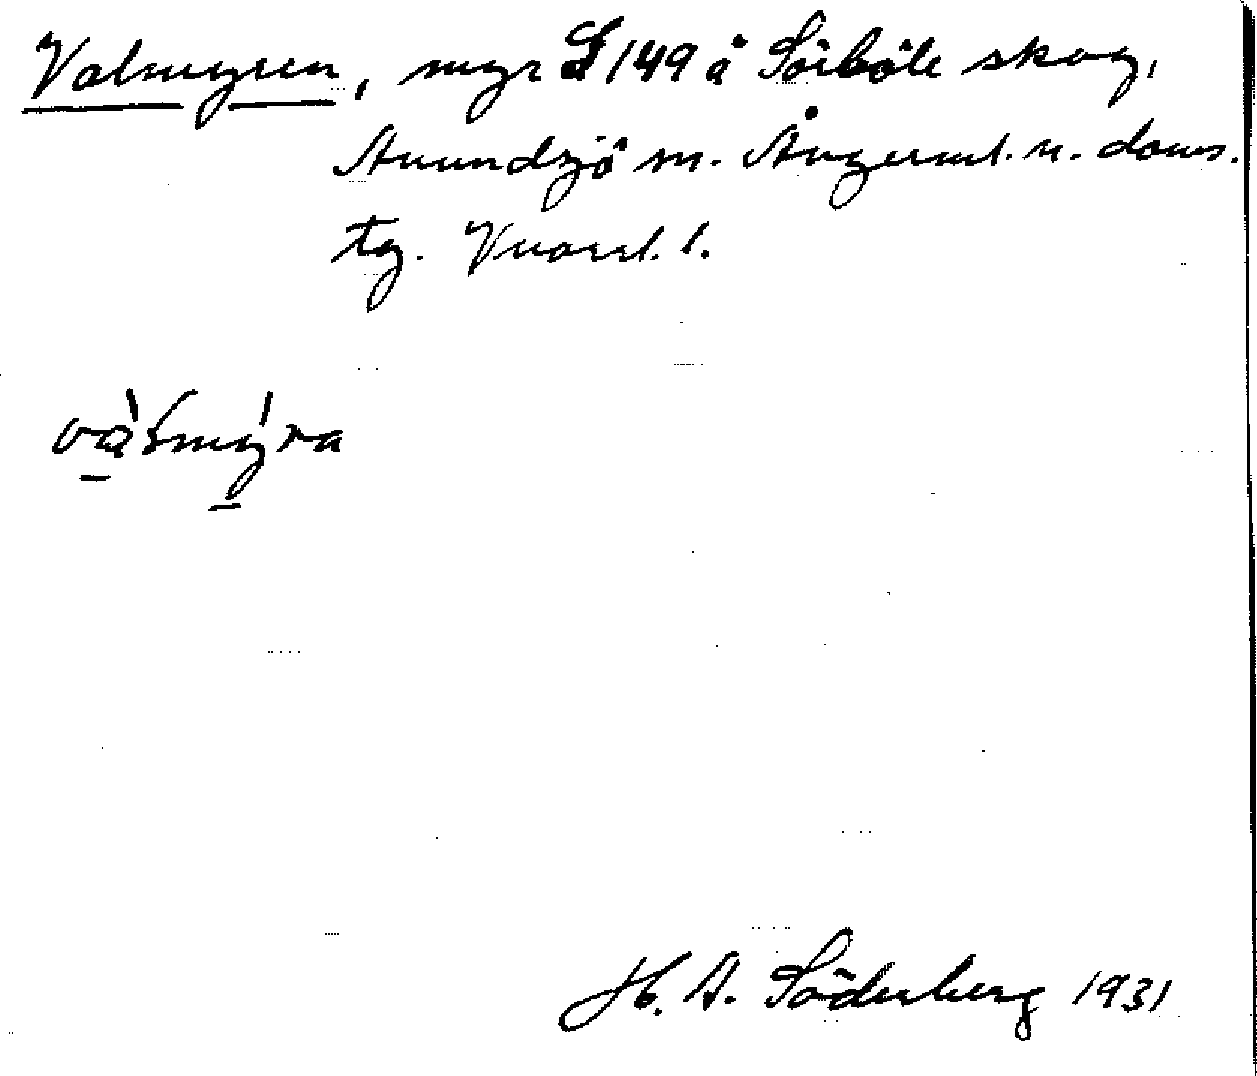 Valmyren, myr S 149 å Sörböle skog,
Anundsjö sn. Ångerml. n. doms.
tg. Vnorrl. l.
vàlmýra
H. A. Söderberg 1931